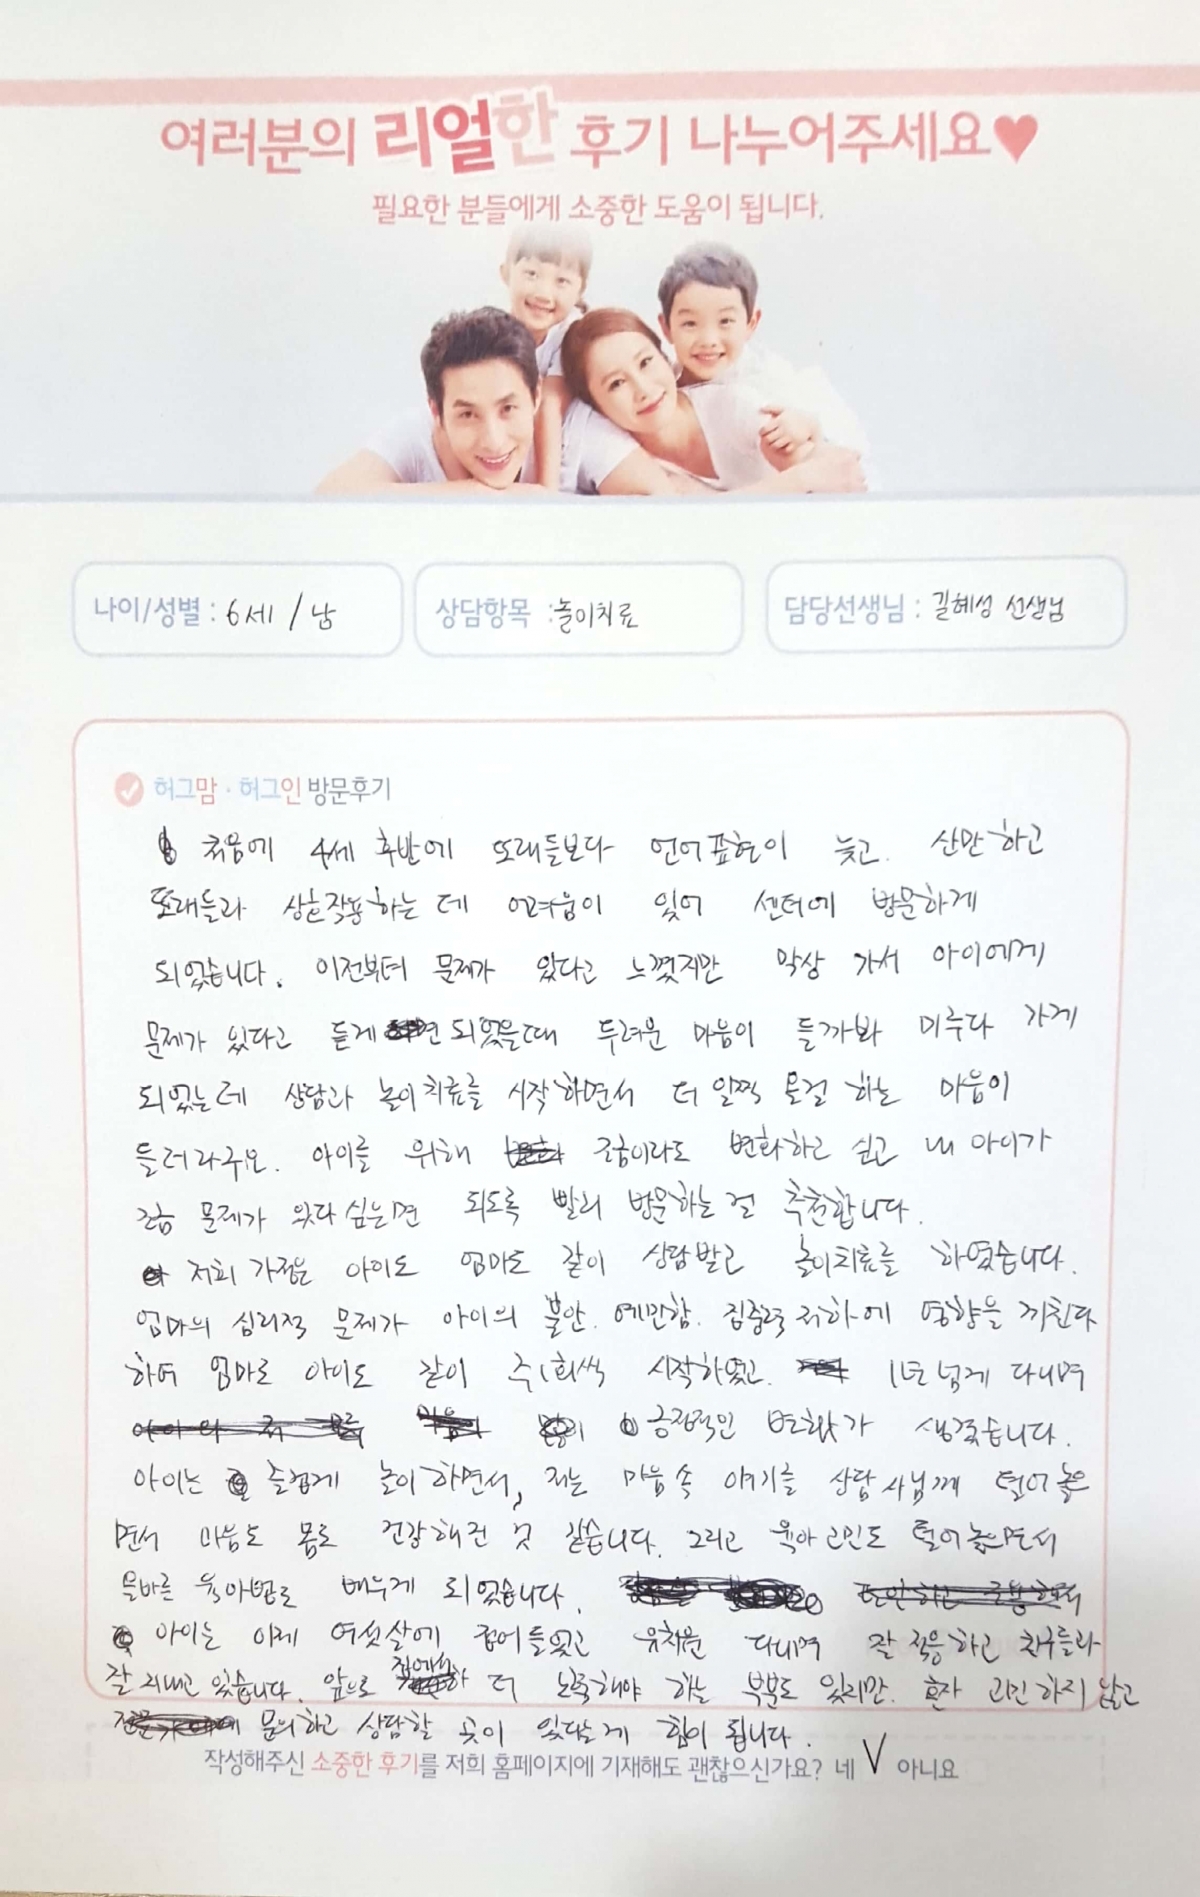 여러분의 리얼한 후기 나누어주세요♥
필요한 분들에게 소중한 도움이 됩니다.
나이/성별 : 6세 / 남
상담항목 : 놀이치료
담당선생님 : 길혜성 선생님
허그맘 · 허그인 방문후기
처음에 4세 후반에 또래들보다 언어표현이 늦고. 산만하고
또래들과 상호작용하는데 어려움이 있어 센터에 방문하게
되었습니다. 이전부터 문제가 있다고 느꼈지만 막상 가서 아이에게
문제가 있다고 듣게 되었을때 두려운 마음이 들까봐 미루다 가게
되었는데 상담과 놀이치료를 시작하면서 더 일찍 올걸 하는 마음이
들더라구요. 아이를 위해 조금이라도 변화하고 싶고 내 아이가
조금 문제가 있다 싶으면 되도록 빨리 방문하는 걸 추천합니다.
저희 가정은 아이도 엄마도 같이 상담받고 놀이치료를 하였습니다.
엄마의 심리적 문제가 아이의 불안. 예민함. 집중력 저하에 영향을 끼친다
하여 엄마도 아이도 같이 주1회씩 시작하였고. 1년 넘게 다니며
긍정적인 변화가 생겼습니다.
아이는 즐겁게 놀이하면서, 저는 마음속 얘기를 상담사님께 털어놓으
면서 마음도 몸도 건강해진 것 같습니다. 그리고 육아고민도 털어놓으면서
올바른 육아법도 배우게 되었습니다.
아이는 이제 여섯살에 접어들었고 유치원 다니며 잘 적응하고 친구들과
잘 지내고 있습니다. 앞으로 집에서 더 노력해야 하는 부분도 있지만. 혼자 고민하지 않고
문의하고 상담할 곳이 있다는게 힘이 됩니다.
작성해주신 소중한 후기를 저희 홈페이지에 기재해도 괜찮으신가요? 네 V 아니요